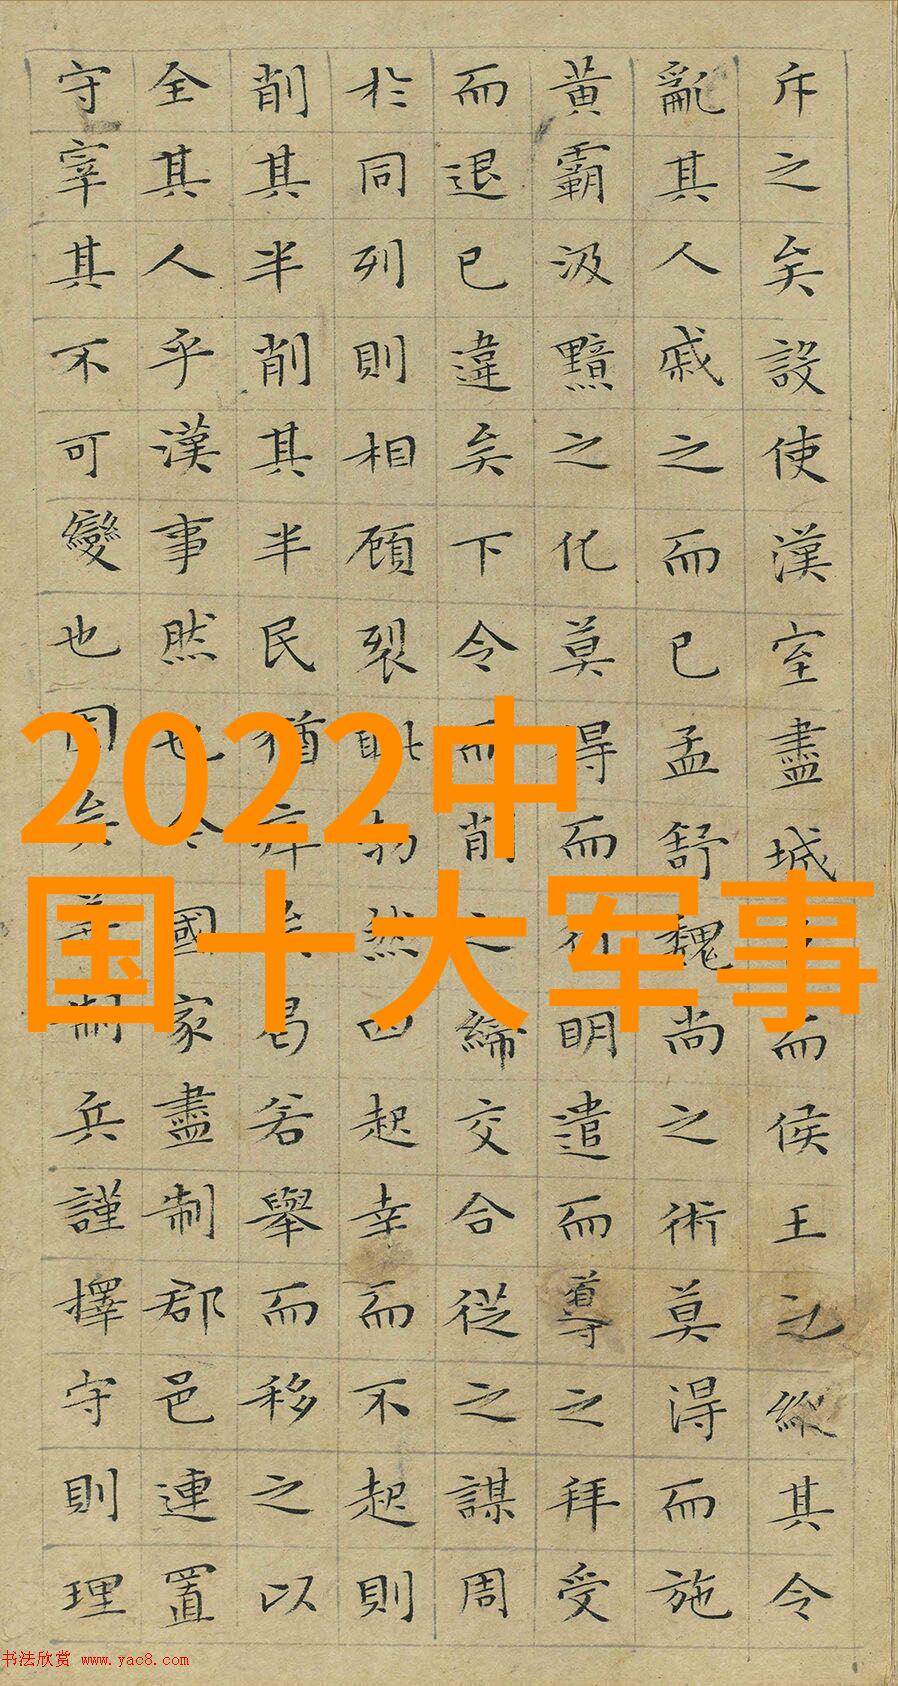 斥之矣設使漢室盡城而侯王之縱其令
亂其人戚之而已孟舒魏尚之術莫得而施
黃霸汲黯之化莫得而行明遣而導之拜受
而退已違矣下令而削之締交合從之謀周
於同列則相顧裂眥勃然而起幸而不起則
削其半削其半民猶瘁矣曷若舉而移之以
全其人乎漢事然也今國家盡制郡邑連置
守宰其不可變也固矣善制兵謹擇守則理
2022中
国十大军事
书法欣赏 www.yac8.com